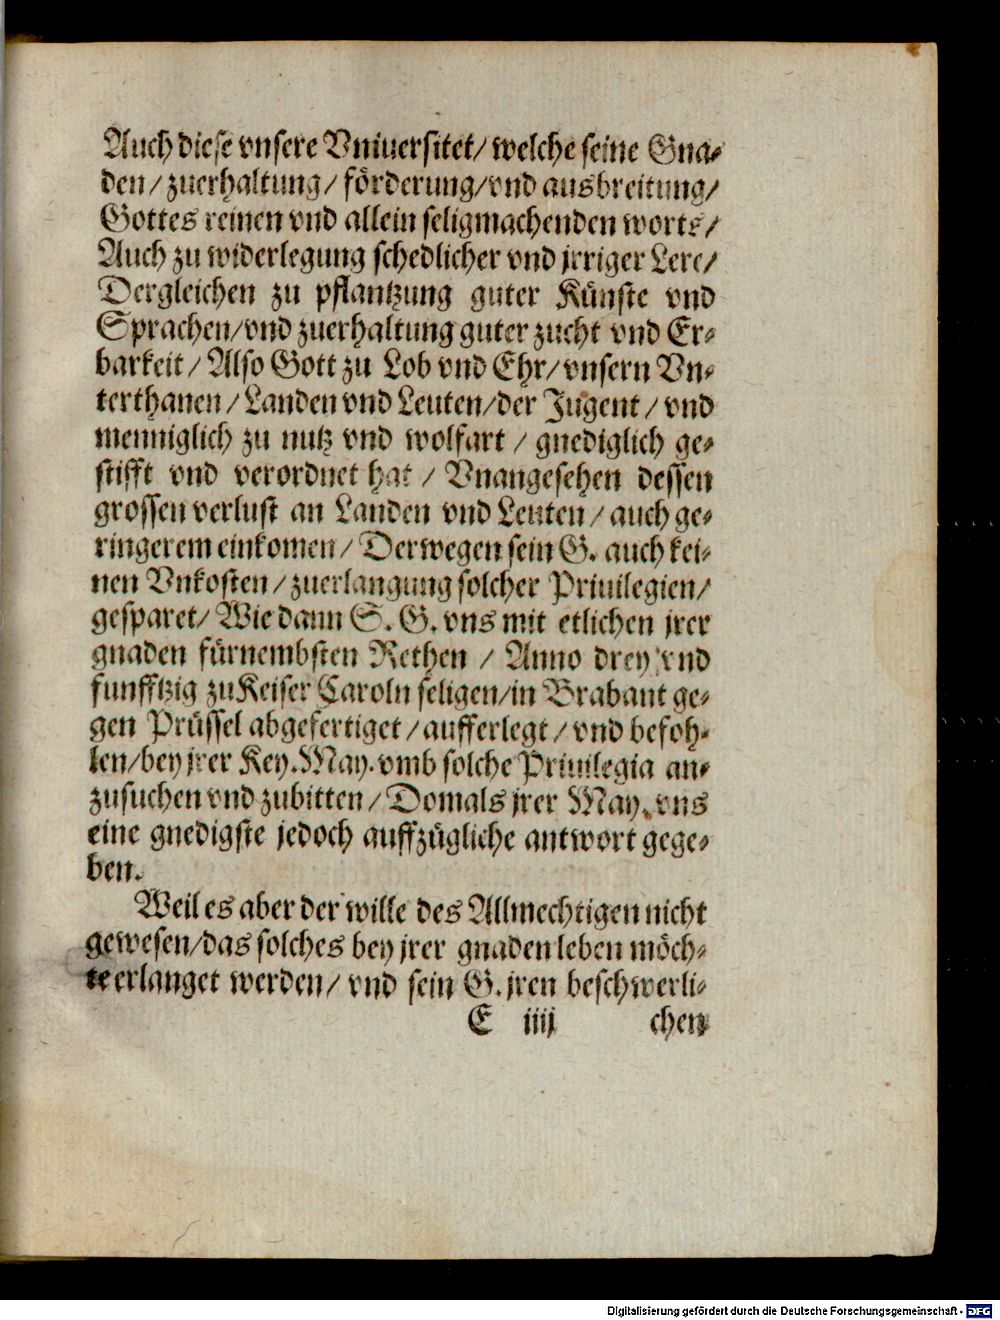 Auch diese vnsere Vniuersitet/ welche seine Gna-
den/ zuerhaltung/ förderung/ vnd ausbreitung/
Gottes reinen vnd allein seligmachenden worts/
Auch zu widerlegung schedlicher vnd jrriger Lere/
Dergleichen zu pflantzung guter Künste vnd
Sprachen/ vnd zuerhaltung guter zucht vnd Er-
barkeit/ Also Gott zu Lob vnd Ehr/ vnsern Vn-
terthanen/ Landen vnd Leuten/ der Jugent/ vnd
menniglich zu nutz vnd wolfart/ gnediglich ge-
stifft vnd verordnet hat/ Vnangesehen dessen
grossen verlust an Landen vnd Leuten/ auch ge-
ringerem einkomen/ Derwegen sein G. auch kei-
nen Vnkosten/ zuerlangung solcher Priuilegien/
gesparet/ Wie dann S. G. vns mit etlichen jrer
gnaden fürnembsten Rethen/ Anno drey vnd
funfftzig zu Keiser Caroln seligen/ in Brabant ge-
gen Prüssel abgefertiget/ aufferlegt/ vnd befoh-
len/ bey jrer Key. May. vmb solche Priuilegia an-
zusuchen vnd zubitten/ Domals jrer May. vns
eine gnedigste jedoch auffzügliche antwort gege-
ben.
Weil es aber der wille des Allmechtigen nicht
gewesen/ das solches bey jrer gnaden leben möch-
te erlanget werden/ vnd sein G. jren beschwerli-
E iiij chen
Digitalisierung gefördert durch die Deutsche Forschungsgemeinschaft - DFG